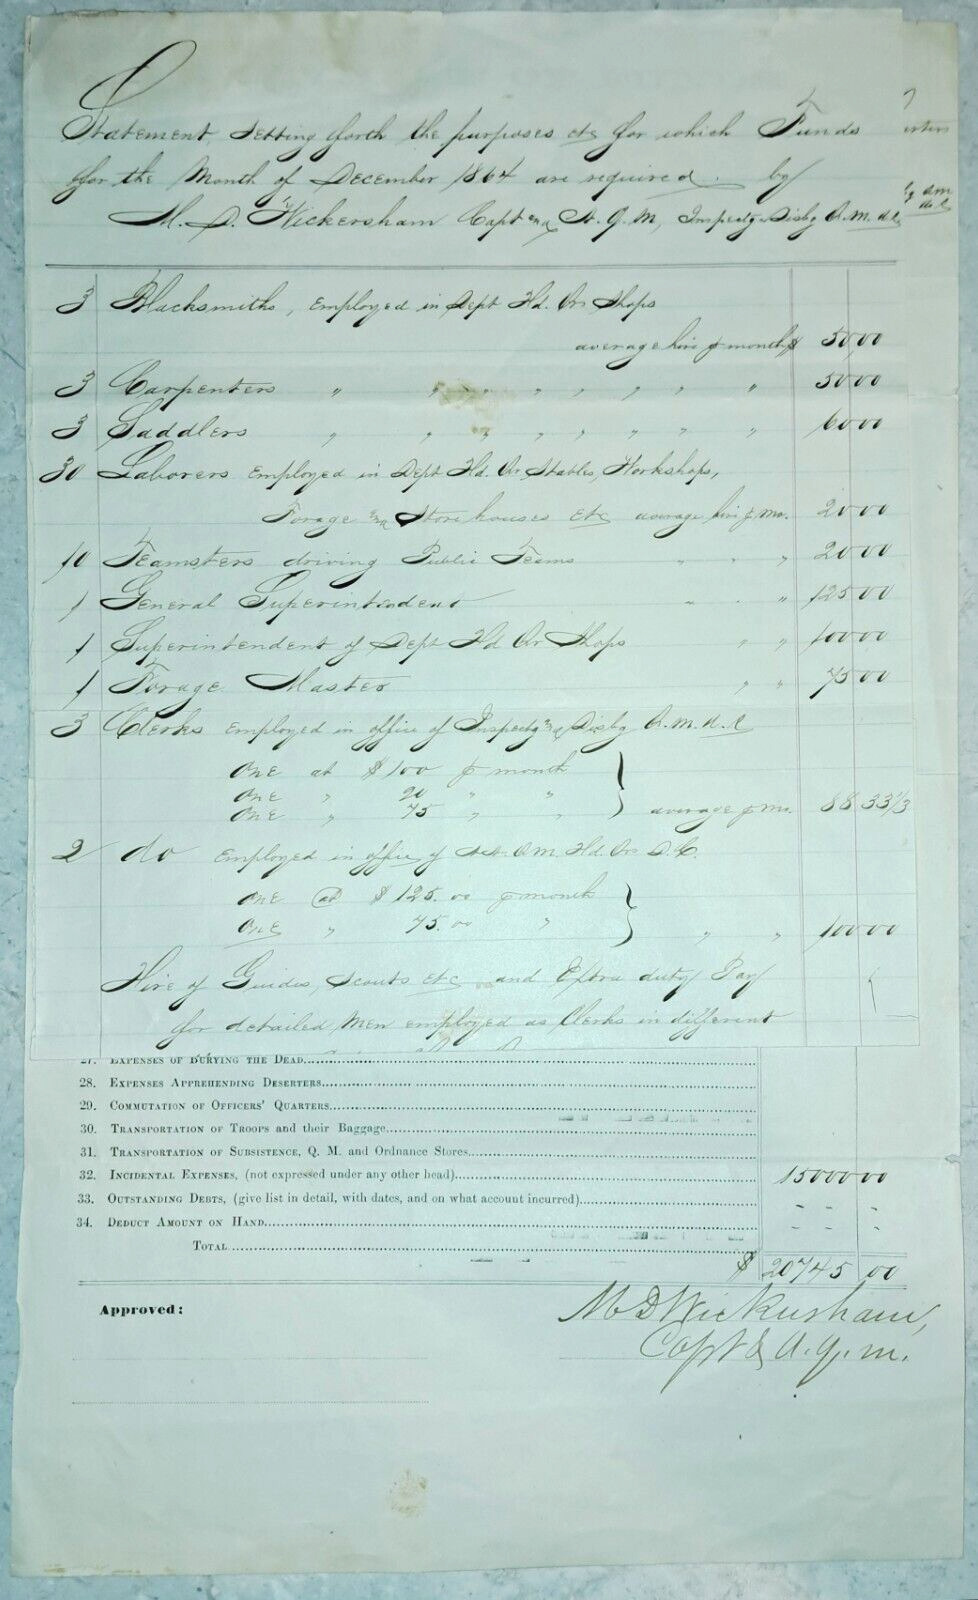 Statement, setting forth the purposes etc for which Funds
for the Month of December 1864 are required by
M. D. Wickersham Capt and A. Q. M, Inspectg & Disbg Q. M. d.C.
3 Blacksmiths, Employed in Dept Hd. Qrs Shops
average hire ⅌ month $ 50,00
3 Carpenters " " " " " " " " 50 00
3 Saddlers " " " " " " " " 60 00
30 Laborers Employed in Dept Hd. Qr Stables, Workshops,
Forage and Store houses etc average hire ⅌ Mo. 20 00
10 Teamsters driving Public Teams " " " 20 00
1 General Superintendent " " 125 00
1 Superintendent of Dept Hd Qr Shops " " 100 00
1 Forage Master " " 75 00
3 Clerks Employed in office of Inspectg and Disbg Q. M. d. C
One at $100 ⅌ month
One " 90 " "
One " 75 " " average ⅌ Mo. 88 33⅓
2 do Employed in office of A.A. Q M. Hd. Qrs D. C.
One @ $125.00 ⅌ month
One " 75.00 " " " 100 00
Hire of Guides, Scouts etc and Extra duty Pay
for detailed Men employed as Clerks in different
27. Expenses of Burying the Dead
28. Expenses Apprehending Deserters
29. Commutation of Officers' Quarters
30. Transportation of Troops and their Baggage
31. Transportation of Subsistence, Q. M. and Ordnance Stores
32. Incidental Expenses, (not expressed under any other head) 15000 00
33. Outstanding Debts, (give list in detail, with dates, and on what account incurred) - - -
34. Deduct Amount on Hand - - -
Total $ 20745 00
Approved:
M D Wickersham,
Capt & A. Q. M.